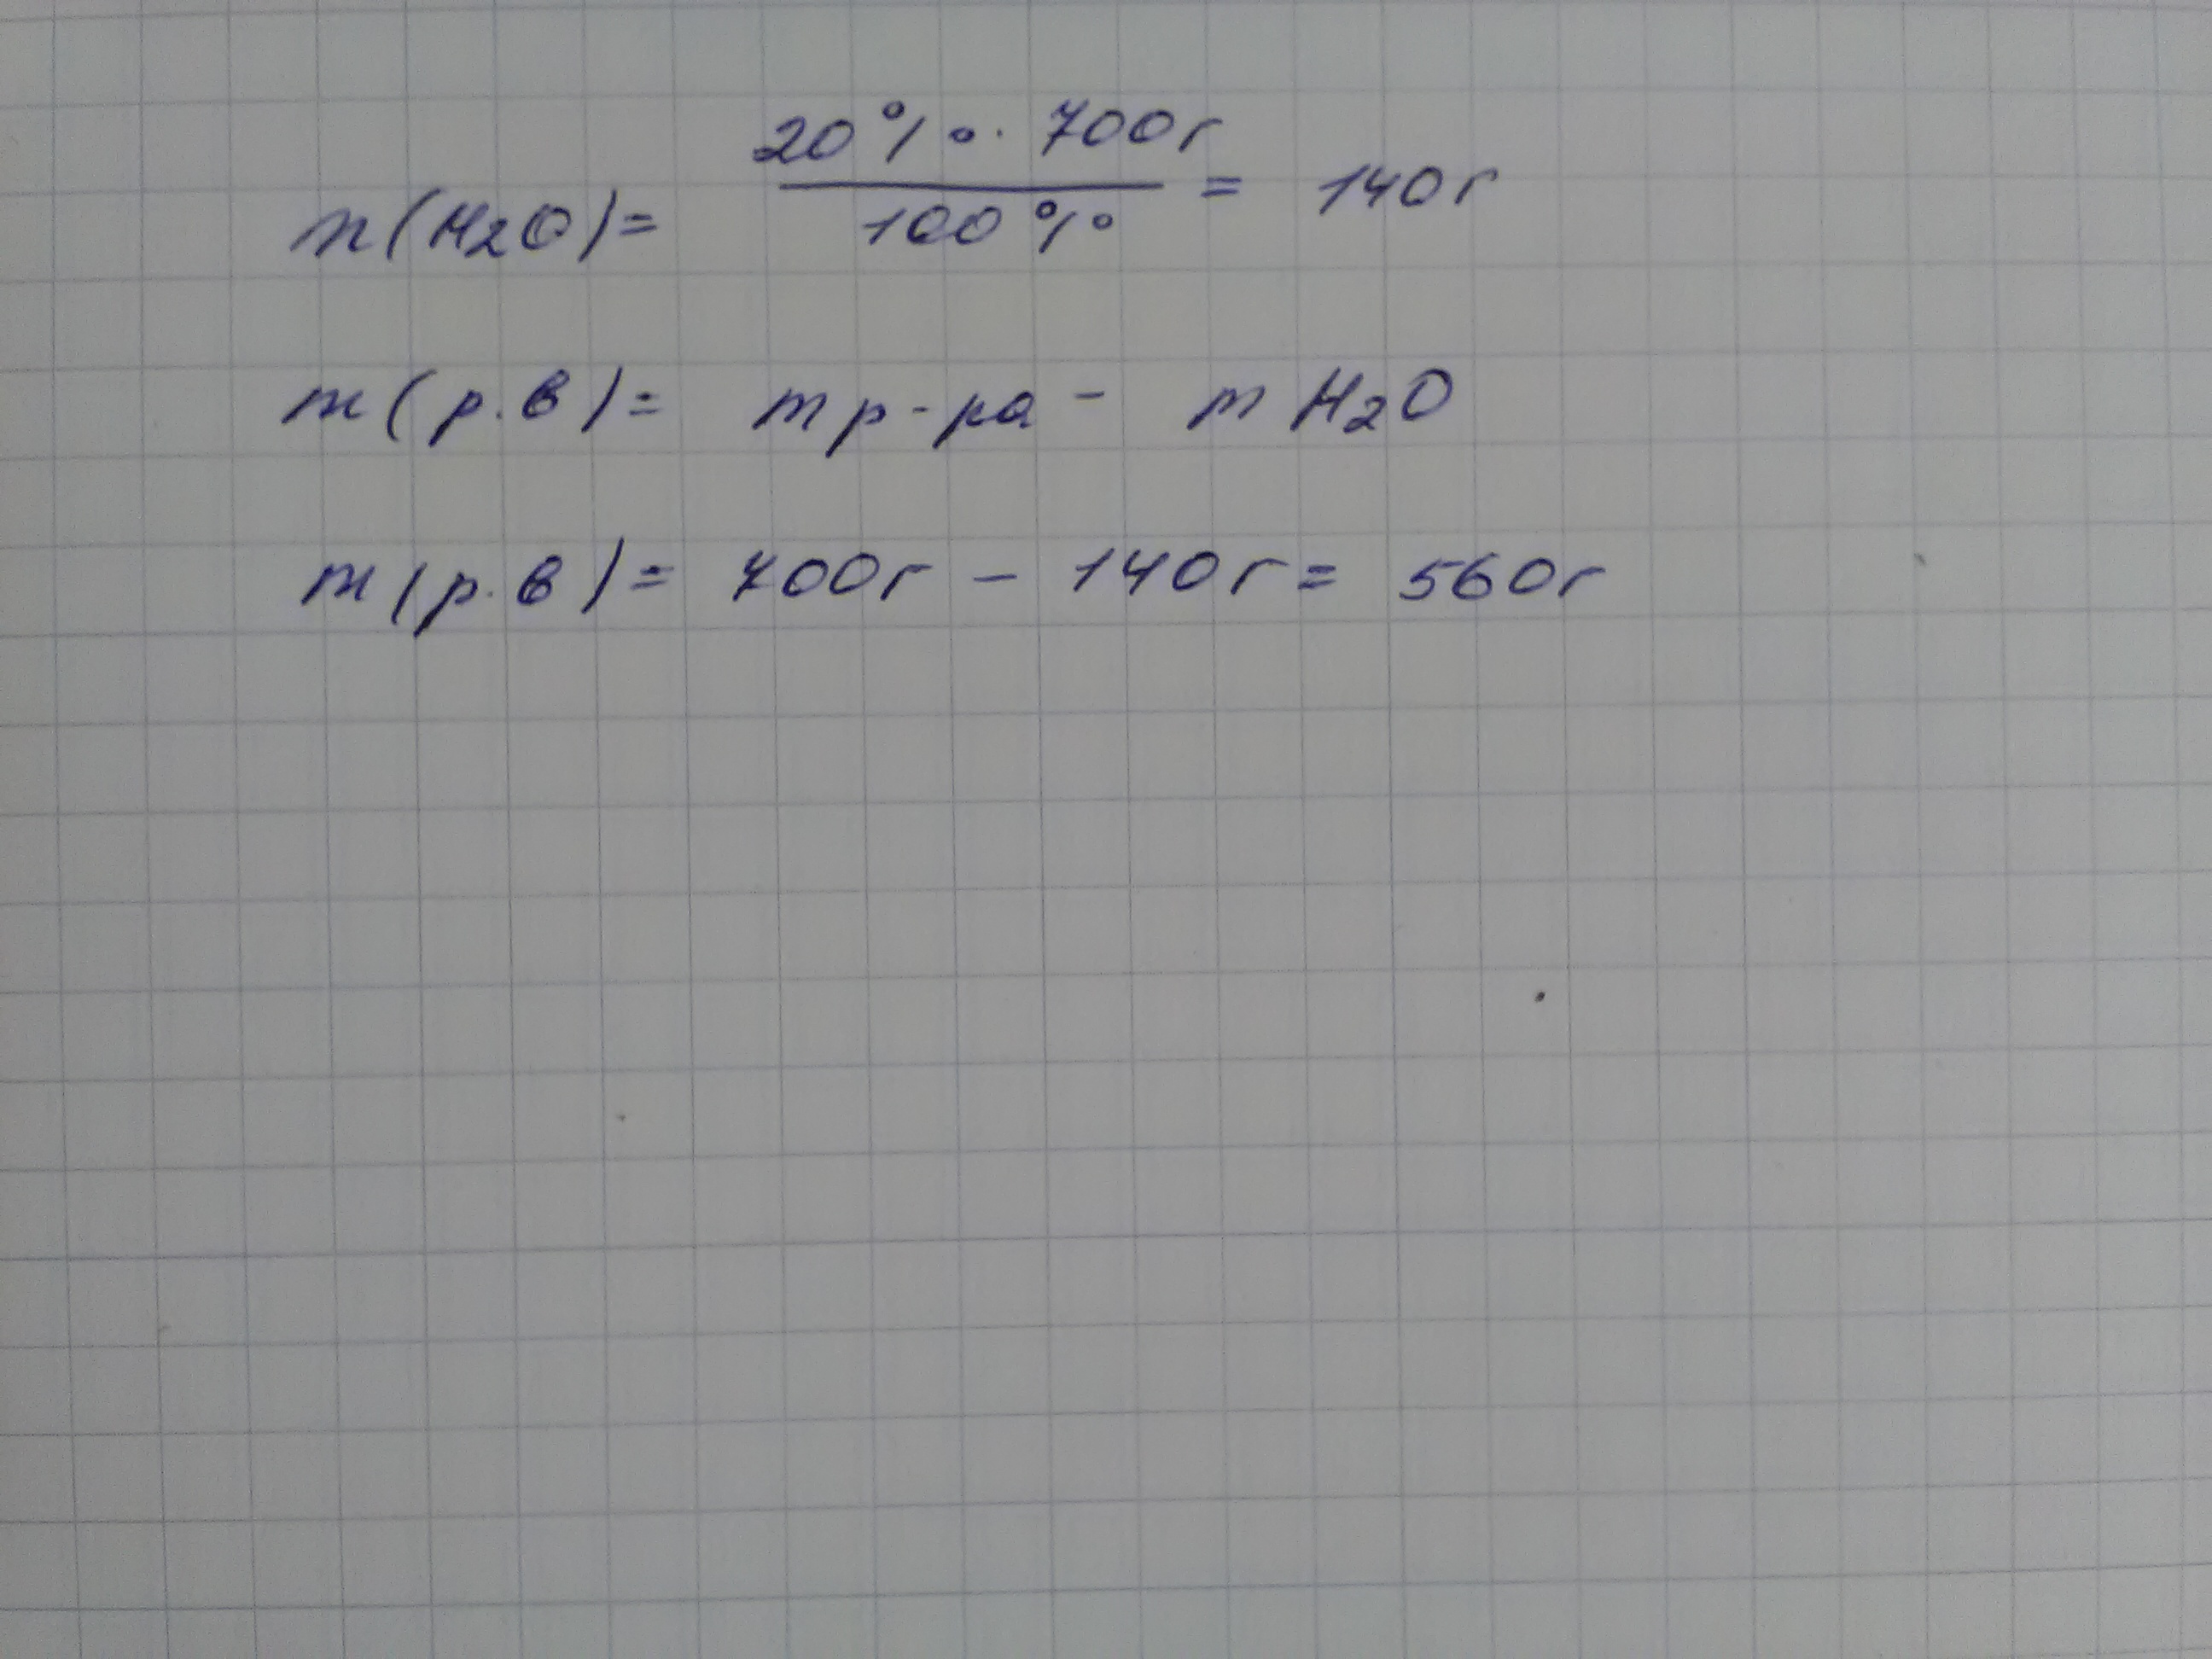 m(H2O)= 20%·700г/100% = 140г
m(р.в)= mр-ра - mH2O
m(р.в)= 700г - 140г = 560г